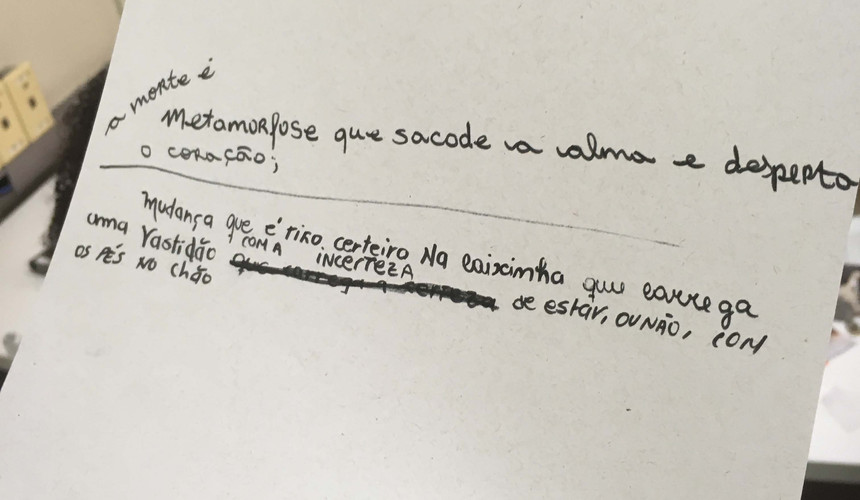 a morte é
Metamorfose que sacode a alma e desperta
o coração;
Mudança que é tiro certeiro na caixinha que carrega
uma vastidão, com a incerteza de estar, ou não, com
os pés no chão